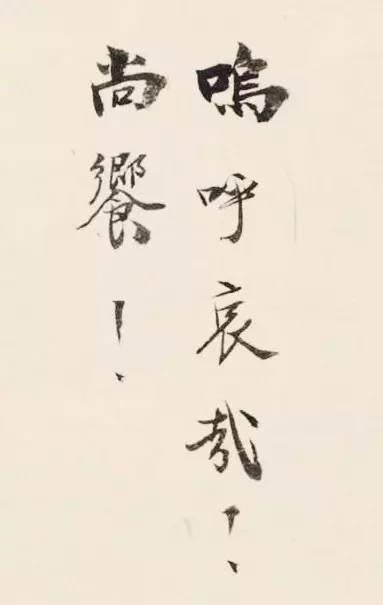 嗚呼哀哉！
尚饗！